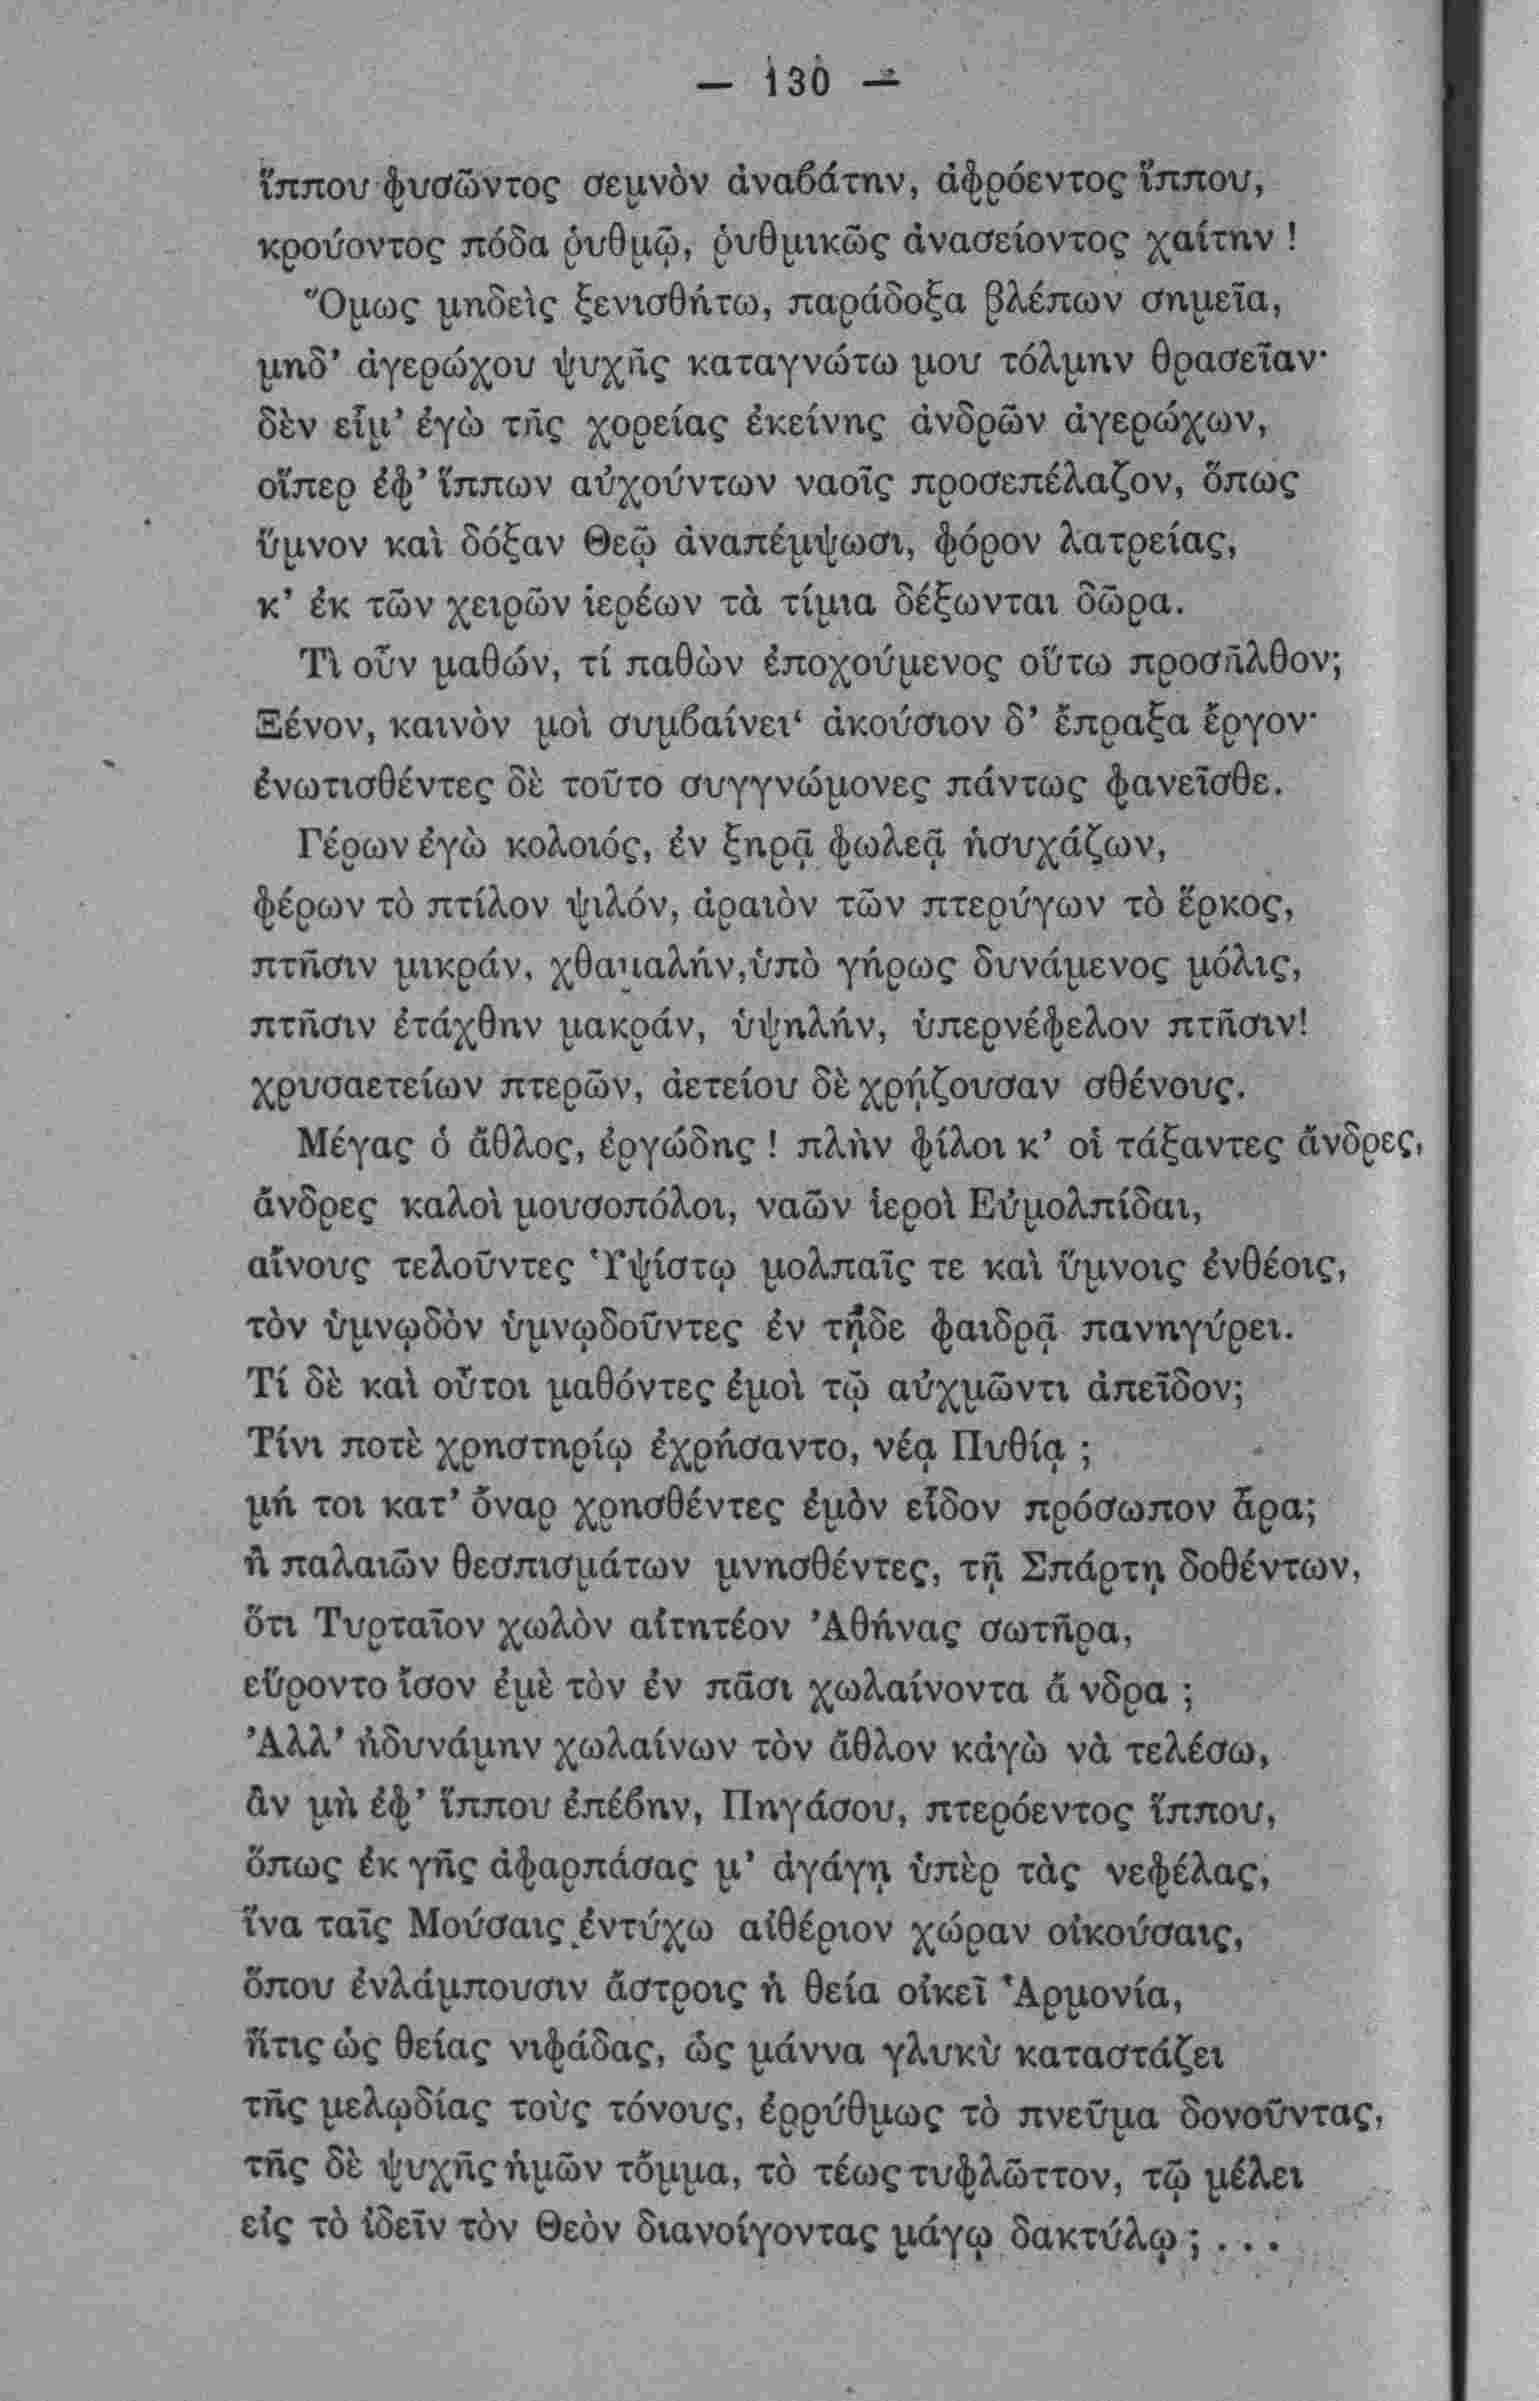 — 130 —
ἵππου φυσῶντος σεμνὸν ἀναβάτην, ἀφρόεντος ἵππου,
κρούοντος πόδα ῥυθμῷ, ῥυθμικῶς ἀνασείοντος χαίτην !
Ὅμως μηδεὶς ξενισθήτω, παράδοξα βλέπων σημεῖα,
μηδ’ ἀγερώχου ψυχῆς καταγνώτω μου τόλμην θρασεῖαν·
δὲν εἶμ’ ἐγὼ τῆς χορείας ἐκείνης ἀνδρῶν ἀγερώχων,
οἵπερ ἐφ’ ἵππων αὐχούντων ναοῖς προσεπέλαζον, ὅπως
ὕμνον καὶ δόξαν Θεῷ ἀναπέμψωσι, φόρον λατρείας,
κ’ ἐκ τῶν χειρῶν ἱερέων τὰ τίμια δέξωνται δῶρα.
Τὶ οὖν μαθών, τί παθὼν ἐποχούμενος οὕτω προσῆλθον;
Ξένον, καινὸν μοὶ συμβαίνει‘ ἀκούσιον δ’ ἔπραξα ἔργον·
ἐνωτισθέντες δὲ τοῦτο συγγνώμονες πάντως φανεῖσθε.
Γέρων ἐγὼ κολοιός, ἐν ξηρᾷ φωλεᾷ ἡσυχάζων,
φέρων τὸ πτίλον ψιλόν, ἀραιὸν τῶν πτερύγων τὸ ἕρκος,
πτῆσιν μικράν, χθαμαλήν,ὑπὸ γήρως δυνάμενος μόλις,
πτῆσιν ἐτάχθην μακράν, ὑψηλήν, ὑπερνέφελον πτῆσιν!
χρυσαετείων πτερῶν, ἀετείου δὲ χρῄζουσαν σθένους.
Μέγας ὁ ἆθλος, ἐργώδης ! πλὴν φίλοι κ’ οἱ τάξαντες ἄνδρες,
ἄνδρες καλοὶ μουσοπόλοι, ναῶν ἱεροὶ Εὐμολπίδαι,
αἴνους τελοῦντες Ὑψίστῳ μολπαῖς τε καὶ ὕμνοις ἐνθέοις,
τὸν ὑμνῳδὸν ὑμνῳδοῦντες ἐν τῇδε φαιδρᾷ πανηγύρει.
Τί δὲ καὶ οὗτοι μαθόντες ἐμοὶ τῷ αὐχμῶντι ἀπεῖδον;
Τίνι ποτὲ χρηστηρίῳ ἐχρήσαντο, νέᾳ Πυθίᾳ ;
μή τοι κατ’ ὄναρ χρησθέντες ἐμὸν εἶδον πρόσωπον ἆρα;
ἢ παλαιῶν θεσπισμάτων μνησθέντες, τῇ Σπάρτῃ δοθέντων,
ὅτι Τυρταῖον χωλὸν αἰτητέον Ἀθήνας σωτῆρα,
εὕροντο ἴσον ἐμὲ τὸν ἐν πᾶσι χωλαίνοντα ἄ νδρα ;
Ἀλλ’ ἠδυνάμην χωλαίνων τὸν ἆθλον κἀγὼ νὰ τελέσω,
ἂν μὴ ἐφ’ ἵππου ἐπέβην, Πηγάσου, πτερόεντος ἵππου,
ὅπως ἐκ γῆς ἀφαρπάσας μ’ ἀγάγῃ ὑπὲρ τὰς νεφέλας,
ἵνα ταῖς Μούσαις ἐντύχω αἰθέριον χώραν οἰκούσαις,
ὅπου ἐνλάμπουσιν ἄστροις ἡ θεία οἰκεῖ Ἁρμονία,
ἥτις ὡς θείας νιφάδας, ὡς μάννα γλυκὺ καταστάζει
τῆς μελῳδίας τοὺς τόνους, ἐρρύθμως τὸ πνεῦμα δονοῦντας,
τῆς δὲ ψυχῆς ἡμῶν τὄμμα, τὸ τέως τυφλῶττον, τῷ μέλει
εἰς τὸ ἰδεῖν τὸν Θεὸν διανοίγοντας μάγῳ δακτύλῳ ; . . .